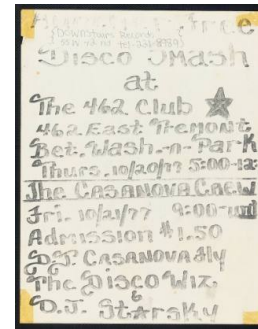 free
Disco Smash
at
The 462 Club
462 East Tremont
Bet. Wash.-n-Park
Thurs. 10/20/77 5:00-12:
The CASANOVA CREW
Fri. 10/21/77 9:00-until
Admission $1.50
D.J. CASANOVA Fly
The Disco Wiz
&
D.J. Starsky